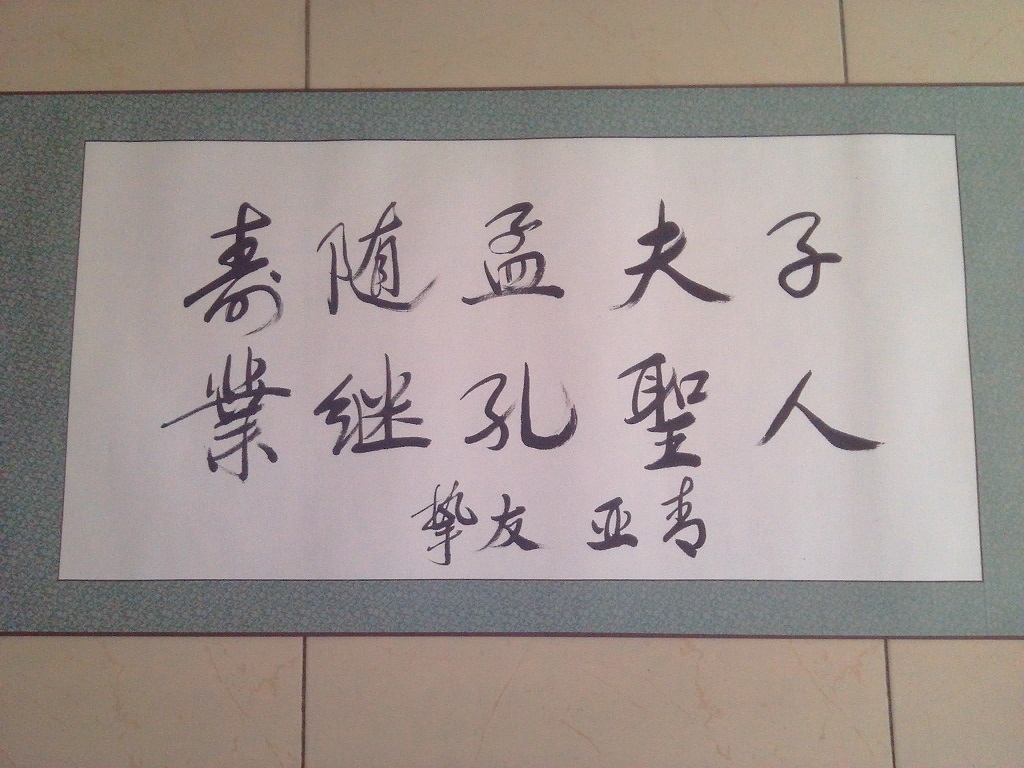 寿随孟夫子
業继孔聖人
挚友 亚青